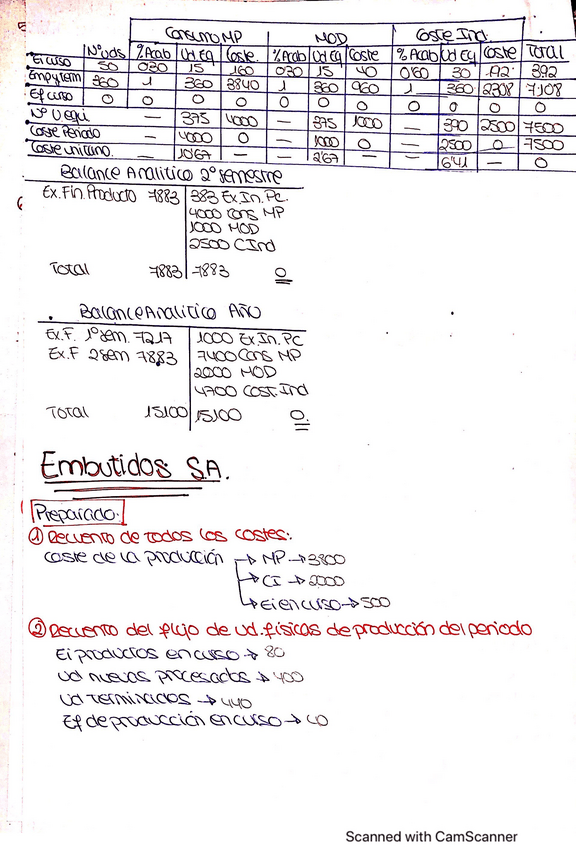 Consumo MP MOD Coste Ind.
Nº uds % Acab Ud Eq Coste. % Acab Ud Eq Coste % Acab Ud Eq Coste Total
Ei curso 50 0'30 15 160 0'30 15 40 0'60 30 192 392
Emp y term 360 1 360 3840 1 360 960 1 360 2308 7108
Ef curso 0 0 0 0 0 0 0 0 0 0 0
Nº U equi — 375 4000 — 375 1000 — 390 2500 7500
Coste Periodo — 4000 0 — 1000 0 — 2500 0 7500
Coste unitario. — 10'67 — — 2'67 — — 6'41 — 0
Balance Analitico 2º semestre
Ex. Fin. Producto 7883 383 Ex. In. Pc.
4000 Cons MP
1000 MOD
2500 C Ind
Total 7883 7883 0
Balance Analitico Año
Ex. F. 1º sem. 7217 1000 Ex. In. Pc
Ex. F 2 sem 7883 7400 Cons MP
2000 MOD
4700 Cost. Ind
Total 15100 15100 0
Embutidos S.A.
Preparado.
① Recuento de todos los costes:
coste de la producción → MP → 3800
→ CI → 2000
→ Ei en curso → 500
② Recuento del flujo de ud. físicas de producción del periodo
Ei productos en curso → 80
Ud nuevas procesados → 400
Ud terminados → 440
Ef de producción en curso → 40
Scanned with CamScanner